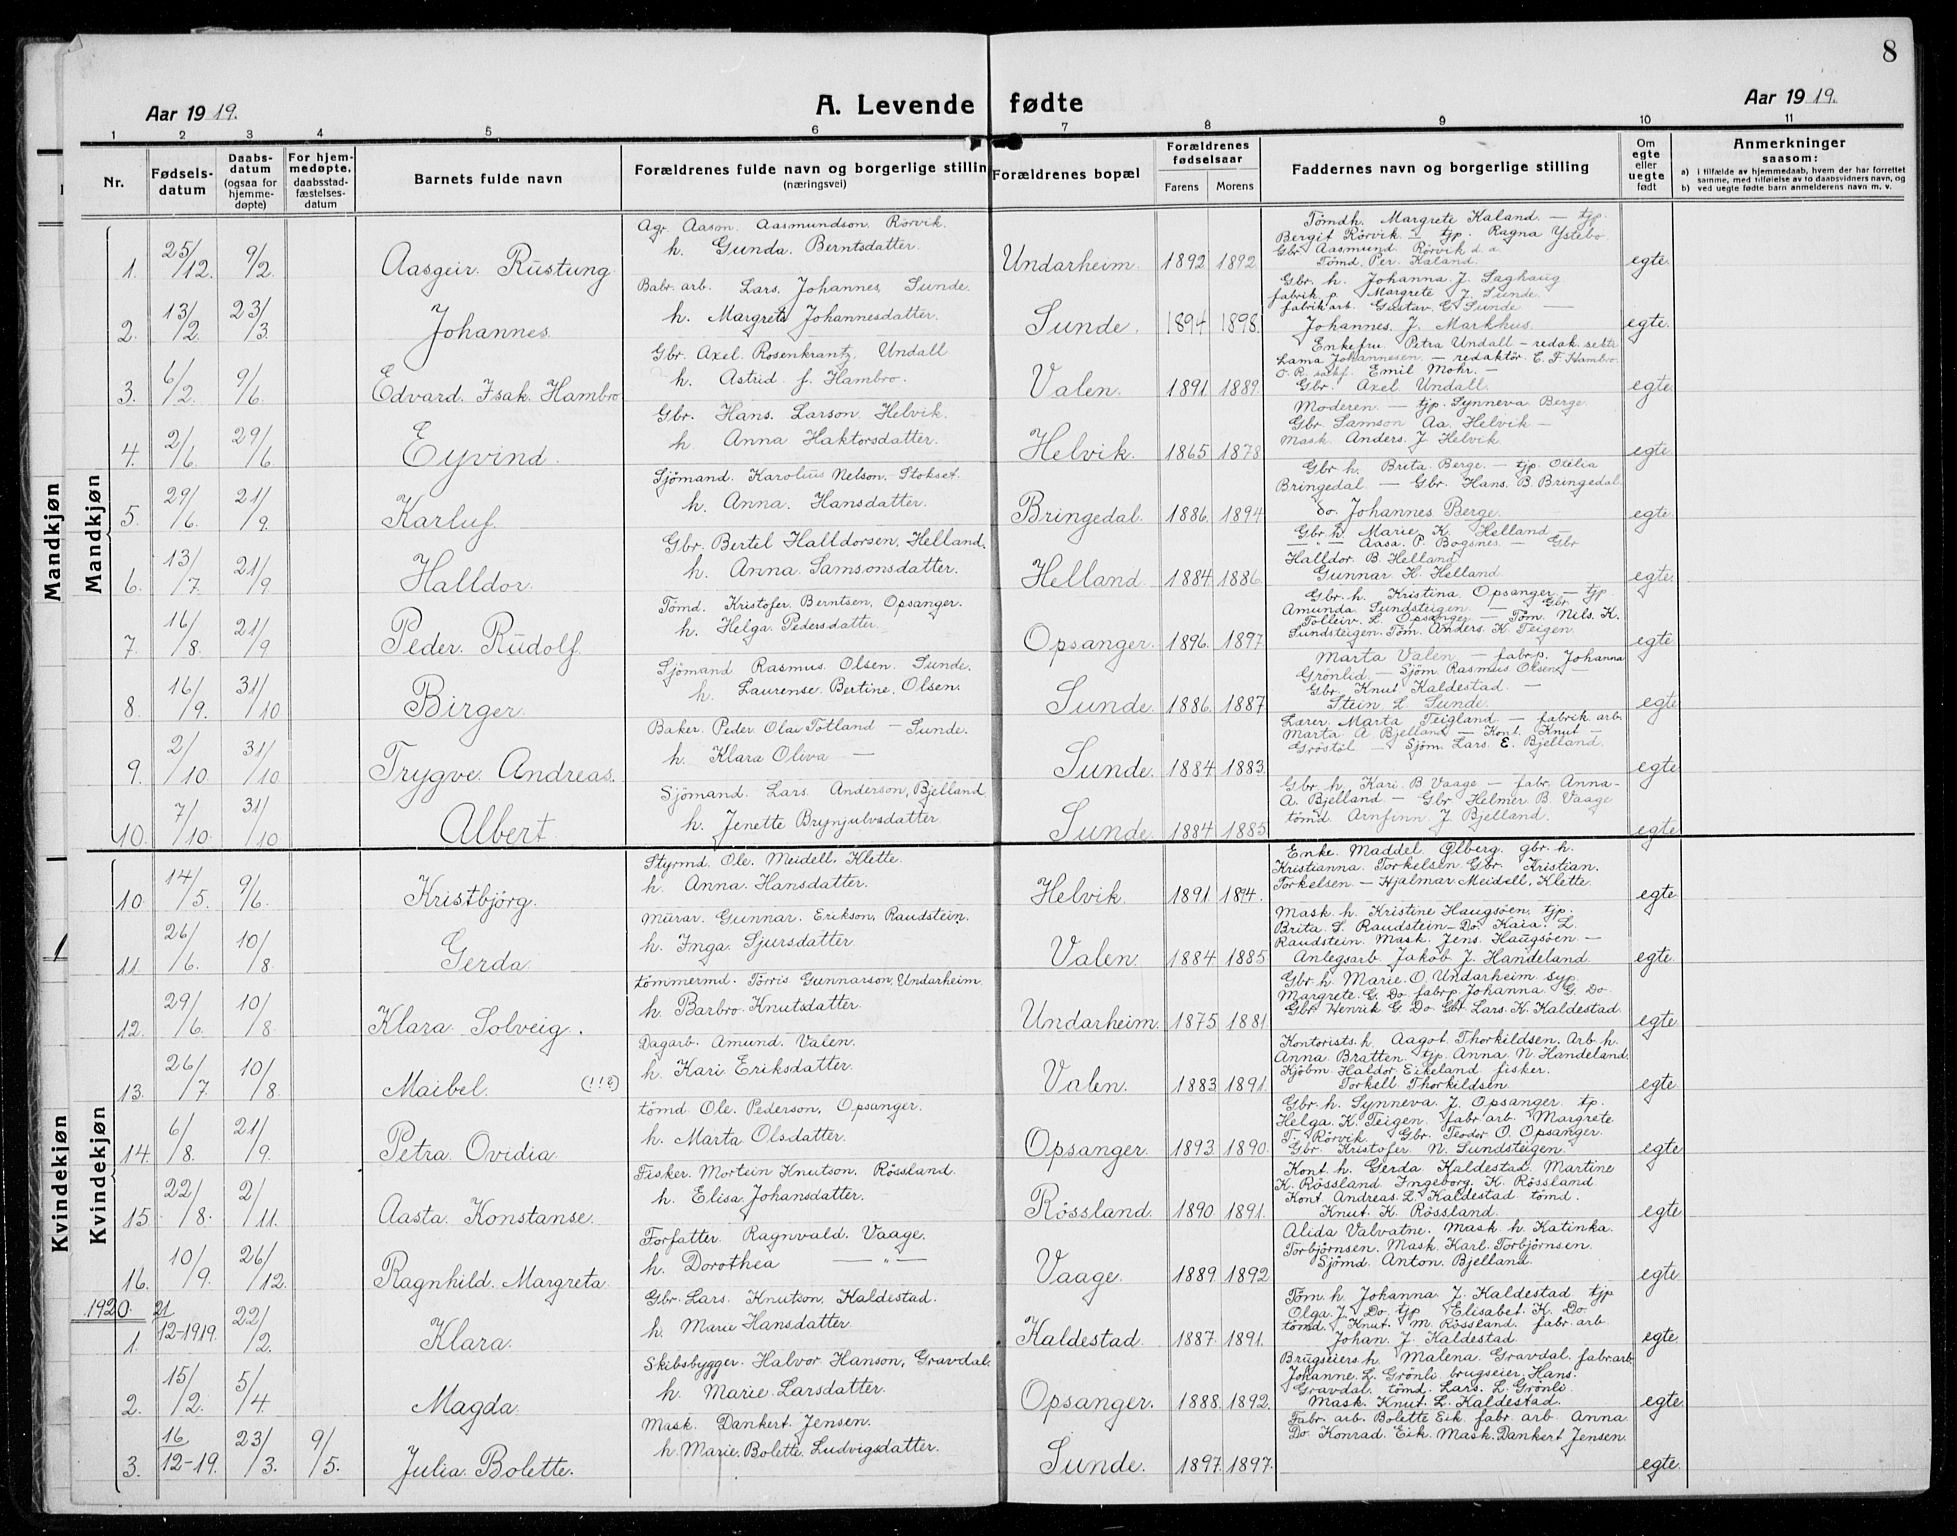 8
Aar 1919.
A. Levende fødte
Aar 1919.
1 2 3 4 5 6 7 8 9 10 11
Nr.
Fødsels-
datum
Daabs-
datum
(ogsaa for
hjemme-
døpte)
For hjem-
medøpte,
daabsstad-
fæstelses-
datum
Barnets fulde navn
Forældrenes fulde navn og borgerlige stilling
(næringsvei)
Forældrenes bopæl
Forældrenes
fødselsaar
Farens Morens
Faddernes navn og borgerlige stilling
Om
egte
eller
uegte
født
Anmerkninger
saasom:
a) i tilfælde av hjemmedaab, hvem der har forrettet
samme, med tilføielse av to daabsvidners navn, og
b) ved uegte fødte barn anmelderens navn m. v.
Mandkjøn
Mandkjøn
1. 25/12. 9/2 Aasgeir. Rustung
Agr. Aason. Aasmundson Rørvik.
h. Gunda. Berntsdatter.
Undarheim. 1892 1892
Tömdh. Margrete Kaland. — tjp.
Bergit Rörvik — tjp. Ragna Ystebö
Gbr. Aasmund. Rörvik d. a.
Tömd. Per. Kaland.
egte.
2. 13/2. 23/3. Johannes.
Babr. arb. Lars. Johannes, Sunde.
h. Margrete Johannesdatter.
Sunde. 1894 1898.
Gbr. h. Johanna J. Saghaug
fabrik p. Margrete J. Sunde.
fabrik arb. Gustav. G. Sunde —
Johannes. J. Markhus.
egte.
3. 6/2. 9/6. Edvard. Isak. Hambro
Gbr. Axel. Rosenkrantz, Undall
h. Astrid. f. Hambro.
Valen. 1891 1889.
Enkefru Petra Undall — redak. sekte
Lama Johannesen. — redaktör. C. F. Hambro
O. R. sakf. Emil Mohr. —
Gbr. Axel Undall.
egte.
4. 2/6. 29/6 Eyvind.
Gbr. Hans. Larson. Helvik.
h. Anna Haktorsdatter.
Helvik. 1865 1878
Moderen. — tjp. Synneva Berge.
Gbr. Samson Aa. Helvik —
Mask. Anders. J. Helvik
egte.
5. 29/6. 21/9. Karluf.
Sjömand. Karolius Nelson, Stokset.
h. Anna. Hansdatter.
Bringedal. 1886. 1894
Gbr. h. Brita. Berge. — tjp. Otelia
Bringedal — Gbr. Hans. B. Bringedal
do. Johannes Berge.
egte.
6. 13/7. 21/9 Halldor.
Gbr. Bertel Halldorsen, Helland.
h. Anna. Samsonsdatter.
Helland 1884 1886.
Gbr. h. Marie K. Helland —
— " — Aasa. P. Bogsnes. — Gbr
Halldor. B. Helland
Gunnar. H. Helland
egte.
7. 16/8. 21/9 Peder. Rudolf.
Tömd. Kristofer Berntsen, Opsanger.
h. Helga. Pedersdatter.
Opsanger. 1896. 1897.
Gbr. h. Kristina Opsanger — tjp.
Amunda. Sundsteigen — Gbr.
Tolleiv. L. Opsanger — Töm. Nils. K.
Sundsteigen. Töm. Anders. K. Teigen.
egte
8. 16/9. 31/10 Birger.
Sjömand Rasmus. Olsen. Sunde.
h. Laurense. Bertine, Olsen.
Sunde. 1886. 1887
Marta Valen. — fabr. p. Johanna
Grönlid — Sjöm. Rasmus Olsen —
Gbr. Knut Kaldestad. —
Stein L. Sunde.
egte
9. 2/10 31/10 Trygve. Andreas.
Baker. Peder. Olai Totland — Sunde.
h. Klara Oliva —
Sunde. 1884 1883.
Lærer. Marta Teigland — fabrik. arb.
Marta A Bjelland — Kont. Knut —
Gröstöl — Sjöm. Lars. E. Bjelland.
egte
10. 7/10. 31/10 Albert.
Sjömand. Lars. Anderson, Bjelland.
h. Jenette Brynjulvsdatter.
Sunde. 1884 1885
Gbr h. Kari. B. Vaage — fabr. Anna-
A. Bjelland — Gbr Helmer B. Vaage
tömd Arnfinn J Bjelland.
egte
Kvindekjøn
Kvindekjøn
10. 14/5. 9/6. Kristbjörg.
Styrmd. Ole. Meidell, Klette.
h. Anna. Hansdatter.
Helvik. 1891 1894.
Enke. Maddel Ølberg. gbr. h.
Kristianna Torkelsen Gbr. Kristian.
Torkelsen — Hjalmar Meidell, Klette.
egte
11. 26/6. 10/8 Gerda
Murar. Gunnar. Erikson, Raudstein.
h. Inga. Sjursdatter
Valen. 1884 1885
Mask. h. Kristine Haugsöen, tjp.
Brita L. Raudstein — Do. Kaia. L.
Raudstein. Mask. Jens. Haugsöen —
Anlegsarb Jakob J. Handeland
egte.
12. 29/6. 10/8. Klara Solveig.
tömmermd. Törris Gunnarson, Undarheim
h. Barbro. Knutsdatter
Undarheim. 1875 1881
Gbr. h. Marie. O. Undarheim. syp.
Margrete. G. Do fabr. p. Johanna G. Do.
Gbr Henrik G. Do. Gbr Lars. K. Kaldestad.
egte
13. 26/7. 10/8. Maibel. (!!?)
Dagarb. Amund. Valen.
h. Kari. Eriksdatter.
Valen. 1883 1891.
Kontorists. h. Aagot Thorkildsen. Arb. h.
Anna Bratten. tjp. Anna N. Handeland
Kjöbm. Haldor. Eikeland fisker.
Torkell Thorkildsen
egte.
14. 6/8. 21/9. Petra Ovidia
tömd. Ole. Pederson, Opsanger.
h. Marta Olsdatter.
Opsanger. 1893. 1890.
Gbr. h. Synneva. J. Opsanger. tp.
Helga. K. Teigen. fabr. arb. Margrete
T. Rörvik Gbr. Teodor O. Opsanger.
Gbr. Kristofer. N. Sundsteigen.
egte
15. 22/8. 2/11. Aasta. Konstanse.
Fisker. Mortein Knutson, Rössland
h. Elisa. Johansdatter.
Rössland. 1890 1891.
Kont. h. Gerda Kaldestad. Martine
K. Rössland Ingeborg. K. Rössland
Kont. Andreas. L. Kaldestad tömd.
Knut. K. Rössland.
egte
16. 10/9. 26/12. Ragnhild. Margreta.
Forfatter Ragnvald. Vaage.
h. Dorothea — " —
Vaage. 1889. 1892
Alida Valvatne. Mask h. Katinka.
Torbjörnsen. Mask. Karl. Torbjörnsen.
Sjömd. Anton. Bjelland.
egte
1920
1. 21/12-1919. 22/2. Klara.
Gbr. Lars. Knutson, Kaldestad.
h. Marie Hansdatter
Kaldestad. 1887. 1891.
Töm. h. Johanna J. Kaldestad tjp
Olga. J. Do. tjp Elisabet. K. Do
tömd. Knut. M. Rössland. fabr. arb
Johan. J. Kaldestad.
egte.
2. 15/2. 5/4. Magda
Skibsbygger. Halvor. Hanson, Gravdal.
h. Marie. Larsdatter.
Opsanger. 1888. 1892.
Brugseiers h. Malena. Gravdal. fabr. arb
Johanne L. Grönli brugseier. Hans.
Gravdal. tömd. Lars. L. Grönli.
Mask. Knut. L. Kaldestad.
egte.
3. 16/12-19. 23/3. 9/5. Julia. Bolette.
Mask. Dankert. Jensen.
h. Marie. Bolette. Ludvigsdatter.
Sunde. 1897. 1897.
Fabr. arb. Bolette Eik. fabr. arb Anna
Do. Konrad. Eik. Mask. Dankert Jensen.
egte.